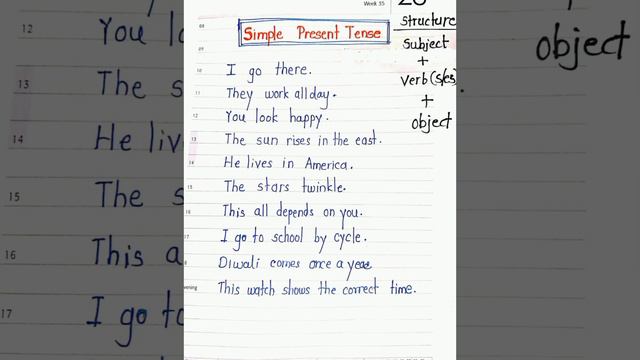 Week 35
Simple Present Tense
structure
Subject
+
Verb (s/es)
+
object
08
10 I go there.
11 They work all day.
12 You look happy.
13 The sun rises in the east.
14 He lives in America.
15 The stars twinkle.
16 This all depends on you.
17 I go to school by cycle.
Diwali comes once a year
This watch shows the correct time.
12 You
13 The
14 He
15 The
16 This
17 I go
object